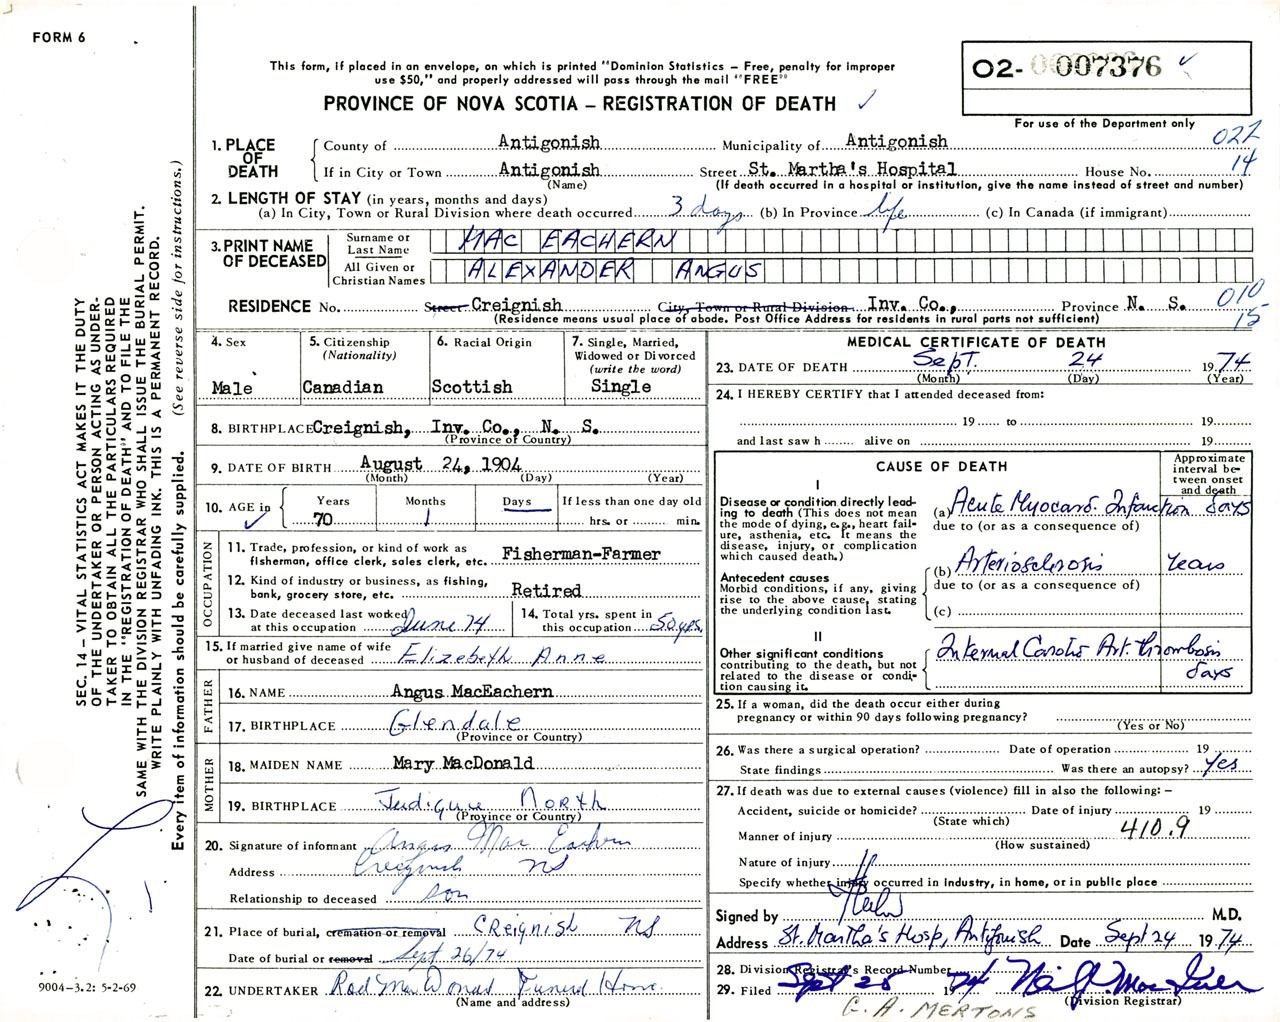 FORM 6
This form, if placed in an envelope, on which is printed "Dominion Statistics – Free, penalty for improper
use $50," and properly addressed will pass through the mail "FREE"
PROVINCE OF NOVA SCOTIA – REGISTRATION OF DEATH
O2- 007376
For use of the Department only
SEC. 14 – VITAL STATISTICS ACT MAKES IT THE DUTY
OF THE UNDERTAKER OR PERSON ACTING AS UNDER-
TAKER TO OBTAIN ALL THE PARTICULARS REQUIRED
IN THE "REGISTRATION OF DEATH" AND TO FILE THE
SAME WITH THE DIVISION REGISTRAR WHO SHALL ISSUE THE BURIAL PERMIT.
WRITE PLAINLY WITH UNFADING INK. THIS IS A PERMANENT RECORD.
Every item of information should be carefully supplied. (See reverse side for instructions.)
1. PLACE OF DEATH
County of Antigonish Municipality of Antigonish 022
If in City or Town Antigonish Street St. Martha's Hospital House No. 14
(Name) (If death occurred in a hospital or institution, give the name instead of street and number)
2. LENGTH OF STAY (in years, months and days)
(a) In City, Town or Rural Division where death occurred 3 days (b) In Province life (c) In Canada (if immigrant)
3. PRINT NAME OF DECEASED
Surname or Last Name MAC EACHERN
All Given or Christian Names ALEXANDER ANGUS
RESIDENCE No. Street Creignish City, Town or Rural Division Inv. Co., Province N. S. 010
(Residence means usual place of abode. Post Office Address for residents in rural parts not sufficient) 15
4. Sex
Male
5. Citizenship
(Nationality)
Canadian
6. Racial Origin
Scottish
7. Single, Married,
Widowed or Divorced
(write the word)
Single
8. BIRTHPLACE Creignish, Inv. Co., N. S.
(Province or Country)
9. DATE OF BIRTH August 24, 1904
(Month) (Day) (Year)
10. AGE in Years Months Days If less than one day old
70 1 hrs. or min.
OCCUPATION
11. Trade, profession, or kind of work as
fisherman, office clerk, sales clerk, etc. Fisherman-Farmer
12. Kind of industry or business, as fishing,
bank, grocery store, etc. Retired
13. Date deceased last worked
at this occupation June 74
14. Total yrs. spent in
this occupation 50 yrs.
15. If married give name of wife
or husband of deceased Elizebeth Anne
FATHER
16. NAME Angus MacEachern
17. BIRTHPLACE Glendale
(Province or Country)
MOTHER
18. MAIDEN NAME Mary MacDonald
19. BIRTHPLACE Judique North
(Province or Country)
20. Signature of informant Angus Mac Eachern
Address Creignish NS
Relationship to deceased son
21. Place of burial, cremation or removal Creignish NS
Date of burial or removal Sept 26/74
22. UNDERTAKER Rod MacDonald Funeral Home
(Name and address)
9004-3.2: 5-2-69
MEDICAL CERTIFICATE OF DEATH
23. DATE OF DEATH Sept. 24 19 74
(Month) (Day) (Year)
24. I HEREBY CERTIFY that I attended deceased from:
19 to 19
and last saw h alive on 19
CAUSE OF DEATH
Approximate
interval be-
tween onset
and death
I
Disease or condition directly lead-
ing to death (This does not
mean the mode of dying, e.g., heart fail-
ure, asthenia, etc. It means the
disease, injury, or complication
which caused death.)
(a) Acute Myocard. Infarction days
due to (or as a consequence of)
Antecedent causes
Morbid conditions, if any, giving
rise to the above cause, stating
the underlying condition last.
(b) Arteriosclerosis Years
due to (or as a consequence of)
(c)
II
Other significant conditions
contributing to the death, but not
related to the disease or condi-
tion causing it.
Internal Carotid Art. thrombosis
days
25. If a woman, did the death occur either during
pregnancy or within 90 days following pregnancy?
(Yes or No)
26. Was there a surgical operation? Date of operation 19
State findings Was there an autopsy? Yes
27. If death was due to external causes (violence) fill in also the following: –
Accident, suicide or homicide? Date of injury 19
(State which)
Manner of injury 410.9
(How sustained)
Nature of injury
Specify whether injury occurred in Industry, in home, or in public place
Signed by M.D.
Address St. Martha's Hosp, Antigonish Date Sept 24 19 74
28. Division Registrar's Record Number
29. Filed Sept 25 19 74
(Division Registrar)
C. A. MERTONS